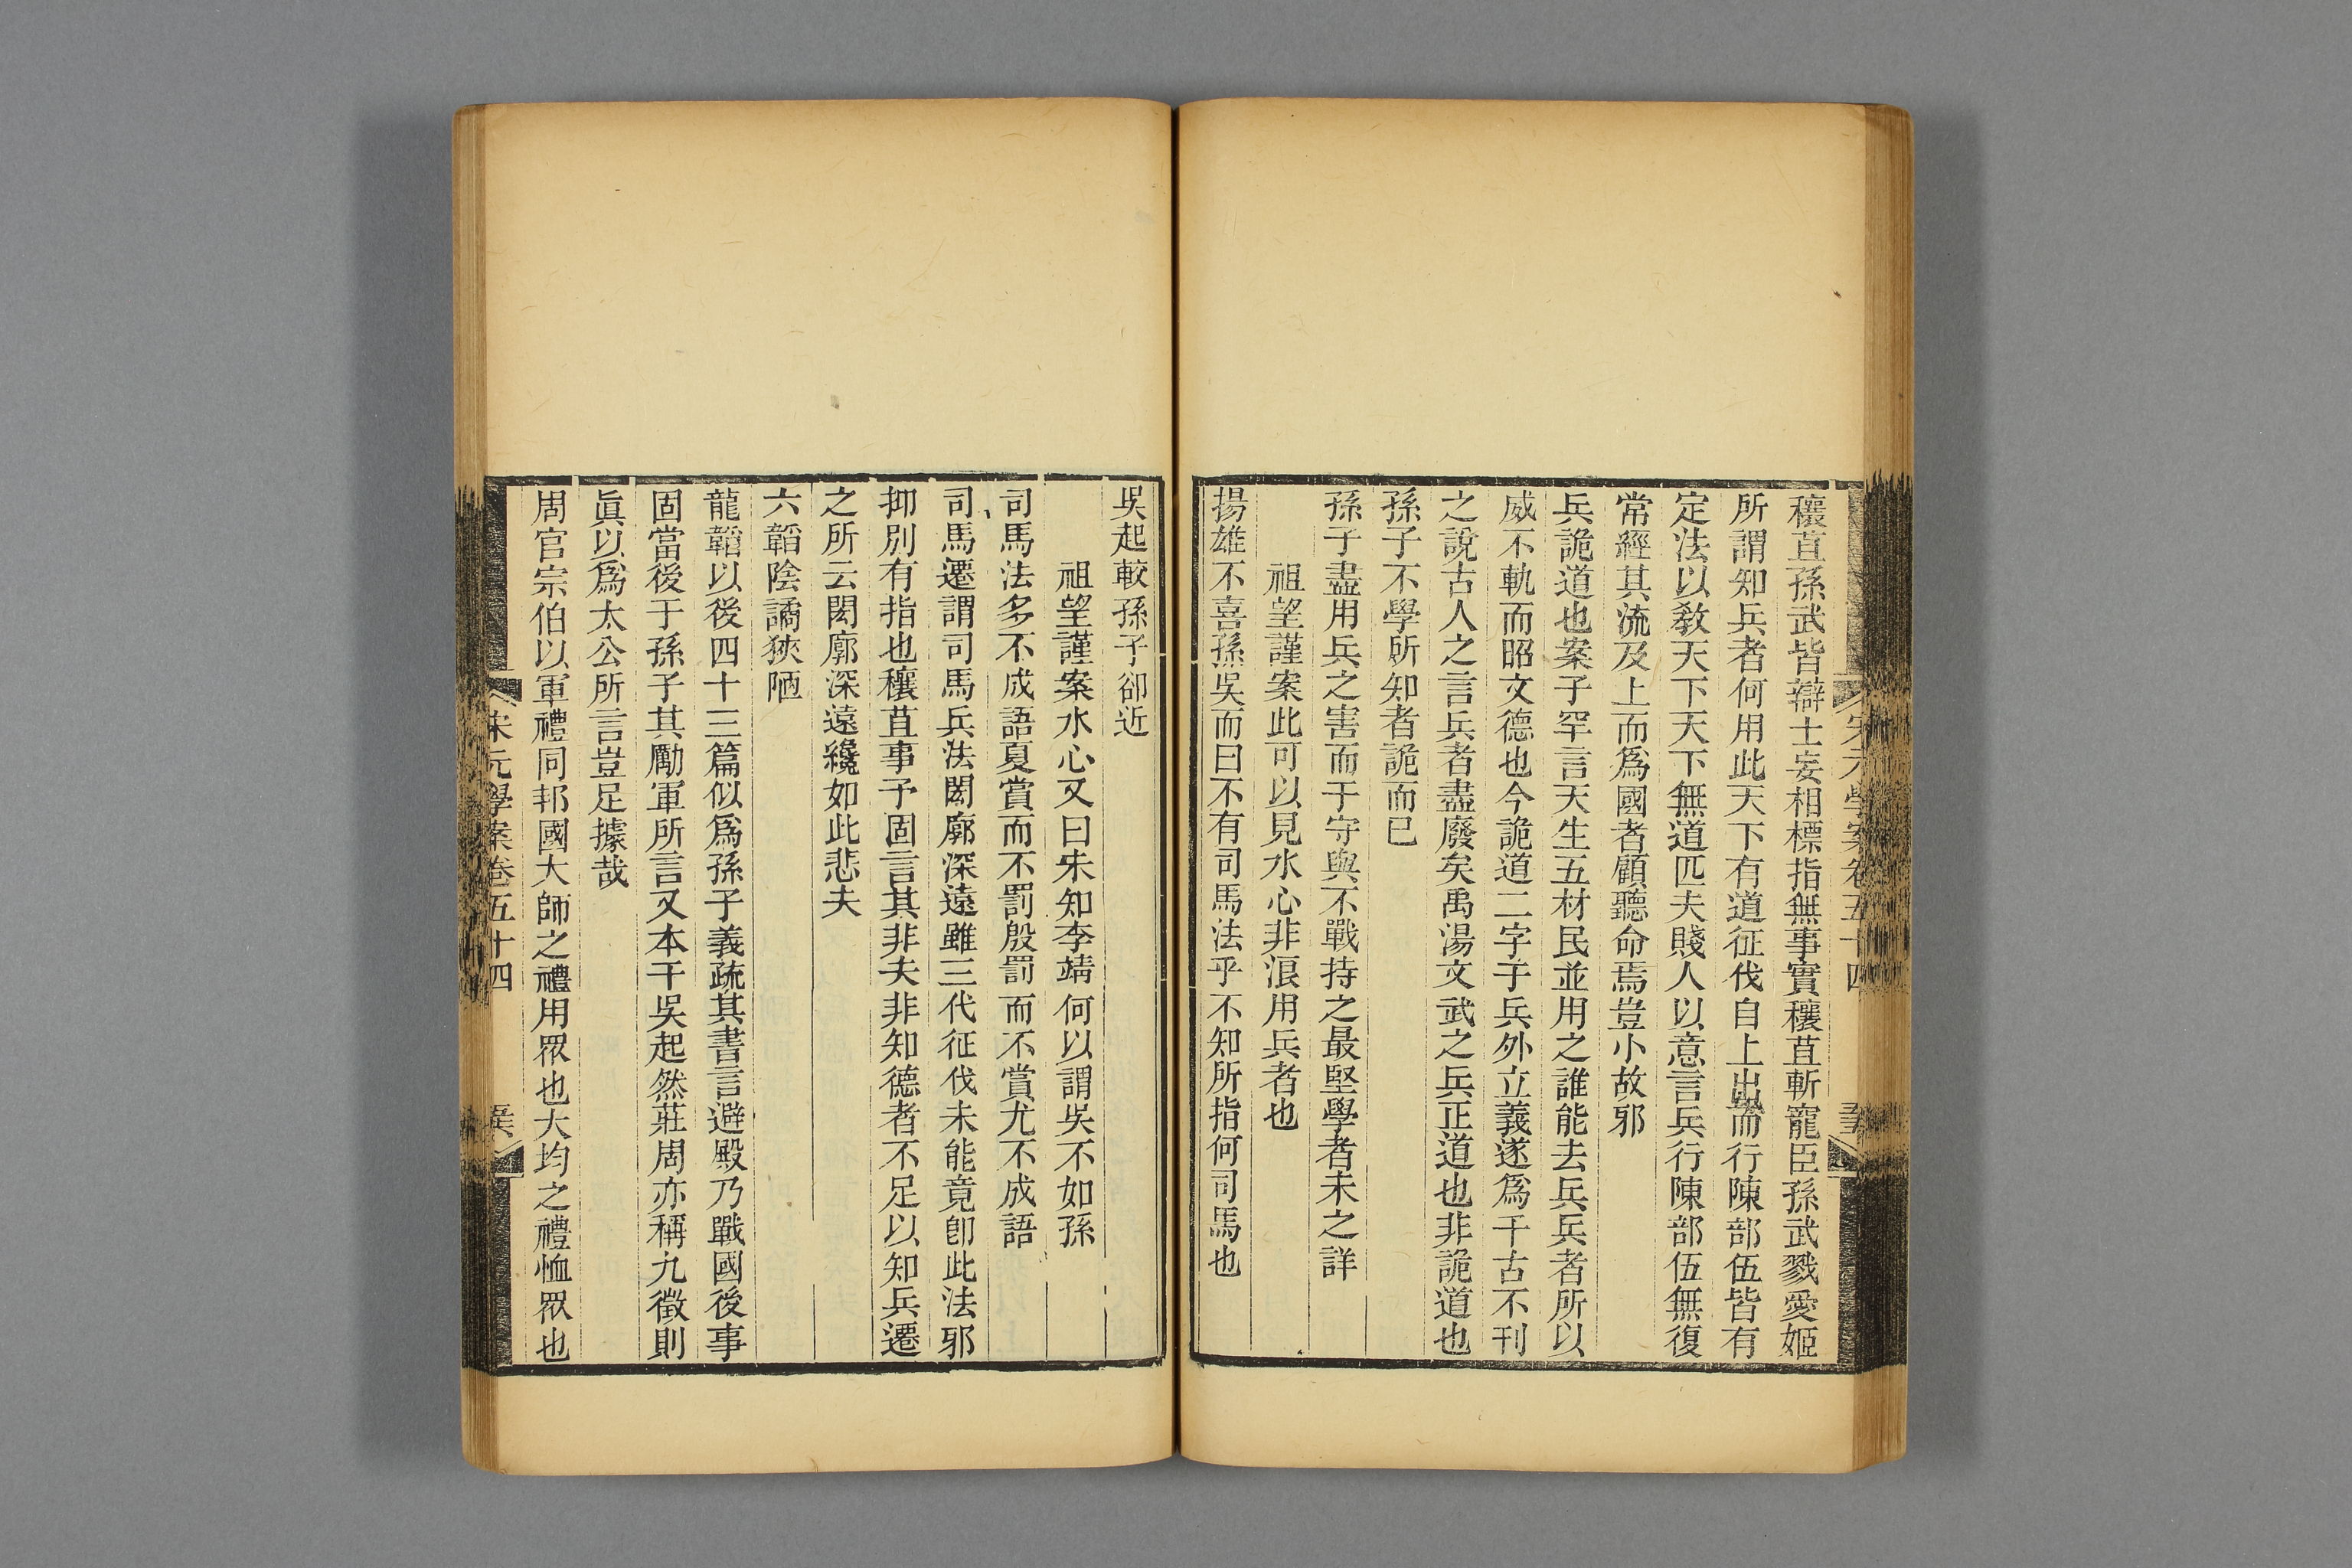 穰苴孫武皆辯士妄相標指無事實穰苴斬寵臣孫武戮愛姬
所謂知兵者何用此天下有道征伐自上出而行陳部伍皆有
定法以敎天下天下無道匹夫賤人以意言兵行陳部伍無復
常經其流及上而爲國者顧聽命焉豈小故邪
兵詭道也案子罕言天生五材民並用之誰能去兵兵者所以
威不軌而昭文德也今詭道二字于兵外立義遂爲千古不刊
之說古人之言兵者盡廢矣禹湯文武之兵正道也非詭道也
孫子不學所知者詭而已
孫子盡用兵之害而于守與不戰持之最堅學者未之詳
祖望謹案此可以見水心非浪用兵者也
揚雄不喜孫吳而曰不有司馬法乎不知所指何司馬也
吳起較孫子卻近
祖望謹案水心又曰未知李靖何以謂吳不如孫
司馬法多不成語夏賞而不罰殷罰而不賞尤不成語
司馬遷謂司馬兵法閎廓深遠雖三代征伐未能竟卽此法邪
抑別有指也穰苴事予固言其非夫非知德者不足以知兵遷
之所云閎廓深遠纔如此悲夫
六韜陰譎狹陋
龍韜以後四十三篇似爲孫子義疏其書言避殿乃戰國後事
固當後于孫子其勵軍所言又本于吳起然莊周亦稱九徵則
眞以爲太公所言豈足據哉
周官宗伯以軍禮同邦國大師之禮用眾也大均之禮恤眾也
宋元學案卷五十四